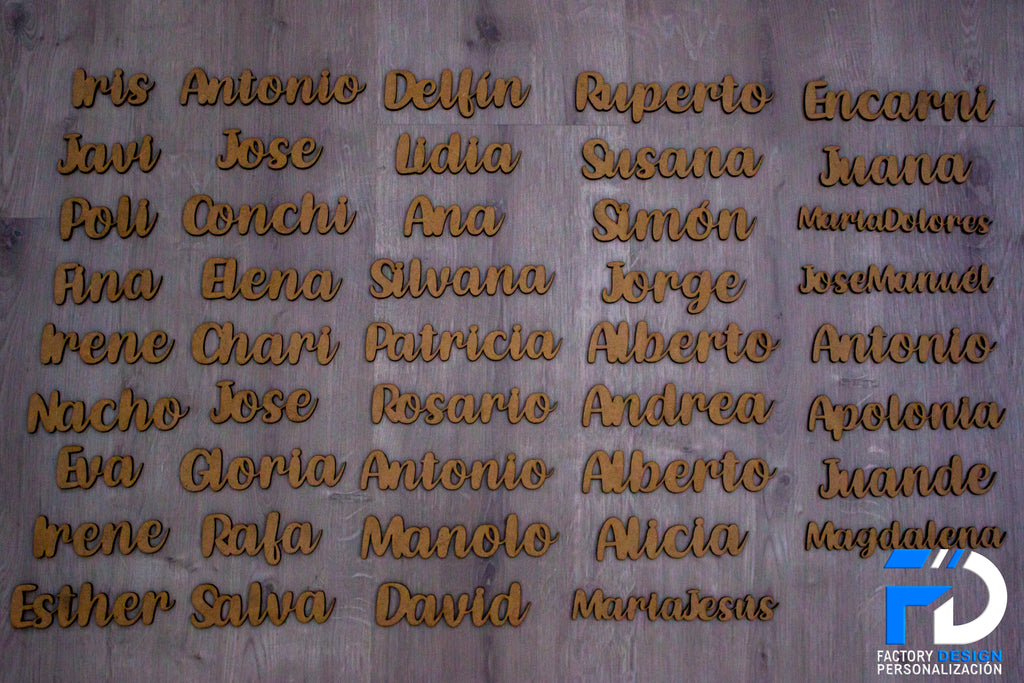 Iris Antonio Delfín Ruperto Encarni
Javi Jose Lidia Susana Juana
Poli Conchi Ana Simón MaríaDolores
Fina Elena Silvana Jorge JoseManuél
Irene Chari Patricia Alberto Antonio
Nacho Jose Rosario Andrea Apolonia
Eva Gloria Antonio Alberto Juande
Irene Rafa Manolo Alicia Magdalena
Esther Salva David MaríaJesús
FD
FACTORY DESIGN
PERSONALIZACIÓN